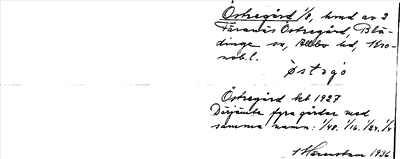 Östregård 1/8, hmd av 2
Täranäs Östregård, Blä-
dinge sn, Allbo hd, Kro-
nob. l.
östagå
Östregård kbl 1927
Därjämte fyra gårdar med
samma namn: 1/48. 1/16. 1/24. 1/4
1936